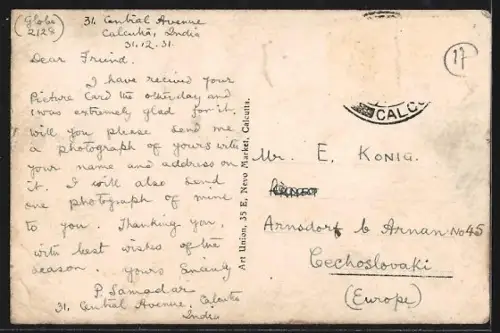 (Globe 2128)
31, Central Avenue
Calcutta, India
31.12.31.
Dear Friend.
I have recived your
Picture Card the other day and
I was extremely glad for it.
will you please send me
a photograph of yours with
your name and address on
it. I will also send
one photograph of mine
to you. Thanking you
with best wishes of the
season. yours Sincerly
P. Samadar
31, Central Avenue, Calcutta
India
Art Union, 35 E, New Market, Calcutta.
17
CALC
Mr. E. KONIG.
Arnsdorf b Arnan No 45
Cechoslovaki
(Europe)